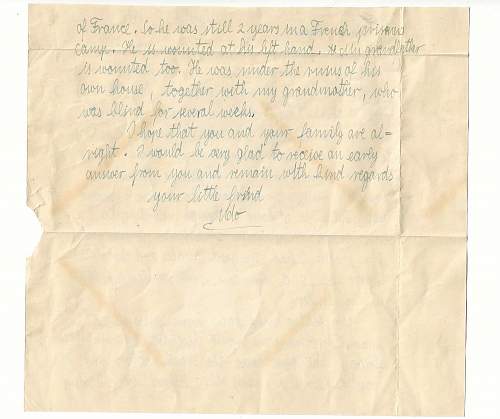 of France. So he was still 2 years in a French prisons
camp. He is wounted at his left hand. My grandfather
is wounted too. He was under the ruins of his
own house, together with my grandmother, who
was blind for several weeks.
I hope that you and your family are al=
right. I would be very glad to receive an early
answer from you and remain with kind regards
your little friend
Udo